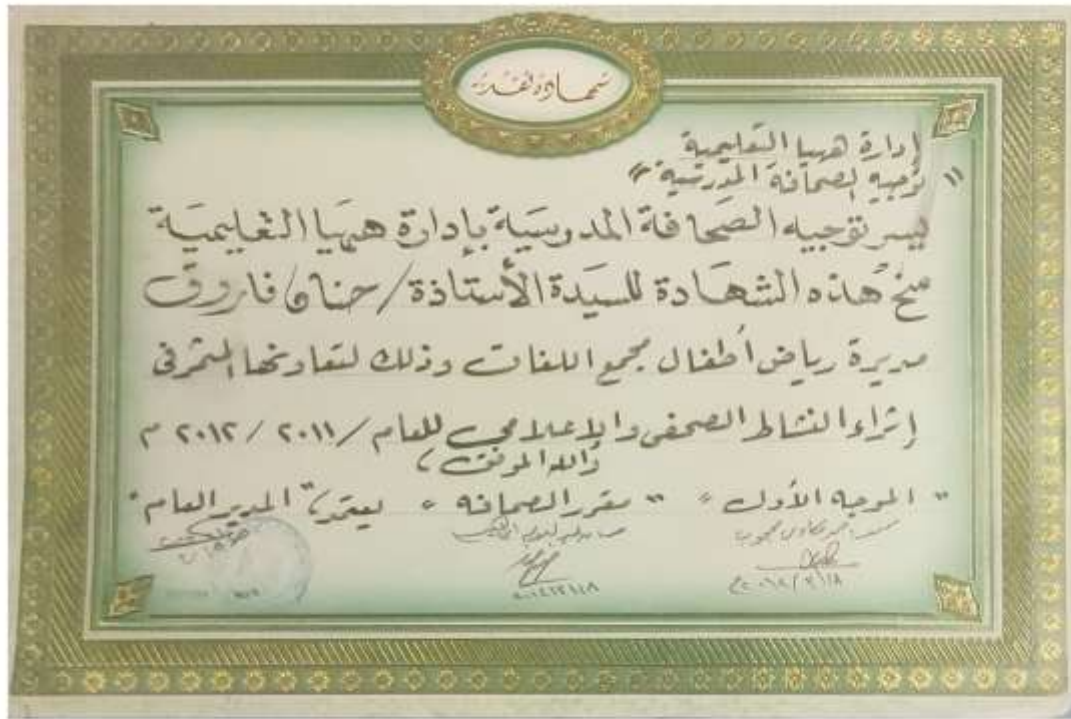 شهادة تقدير
إدارة ههيا التعليمية
" توجيه الصحافة المدرسية "
يسر توجيه الصحافة المدرسية بإدارة ههيا التعليمية
منح هذه الشهادة للسيدة الأستاذة / حنان فاروق
مديرة رياض أطفال مجمع اللغات وذلك لتعاونها المثمر فى
إثراء النشاط الصحفى والإعلامي للعام / ٢٠١١ / ٢٠١٢ م
والله الموفق ،
" الموجه الأول " " مقرر الصحافة " يعتمد ، " المدير العام "